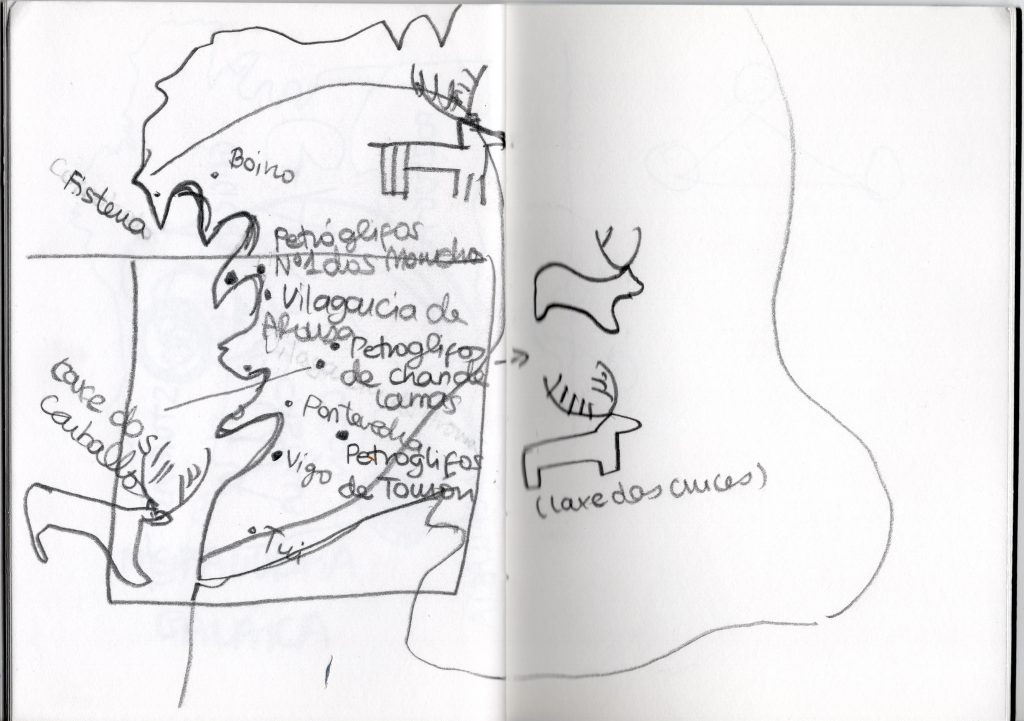 Boiro
Fisterra
Petróglifos
Nº1 dos Moucho
Vilagarcia de
Arousa
Petroglifos
de chan de
Lamas
Pontevedra
Laxe dos
Carballo
Vigo
Petroglifos
de Tourón
Tui
(Laxe dos cruces)